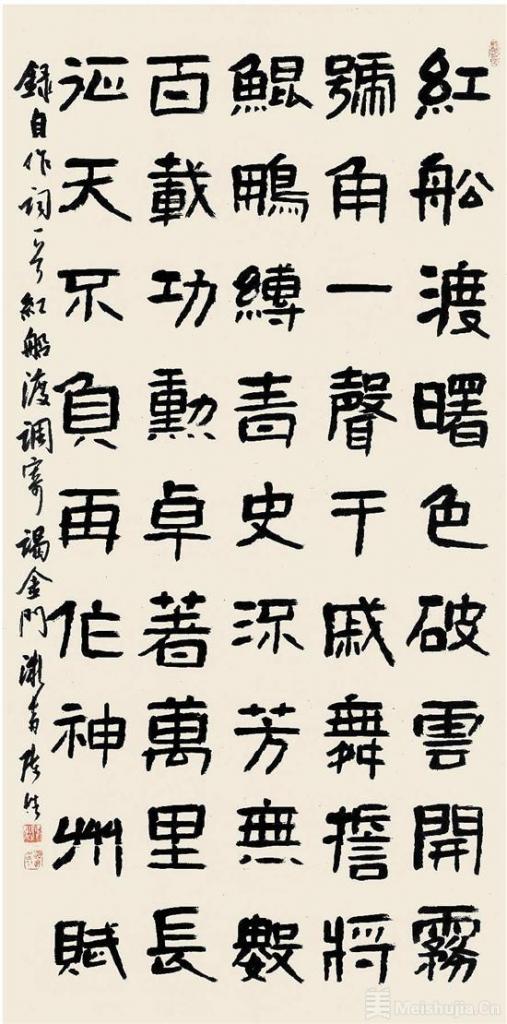 紅船渡曙色破雲開霧
號角一聲干戚舞擔將
鯤鵬縛青史流芳無數
百載功勳卓著萬里長
征天不負再作神州賦
錄自作詞一首紅船渡調寄謁金門
美 Meishujia.Cn